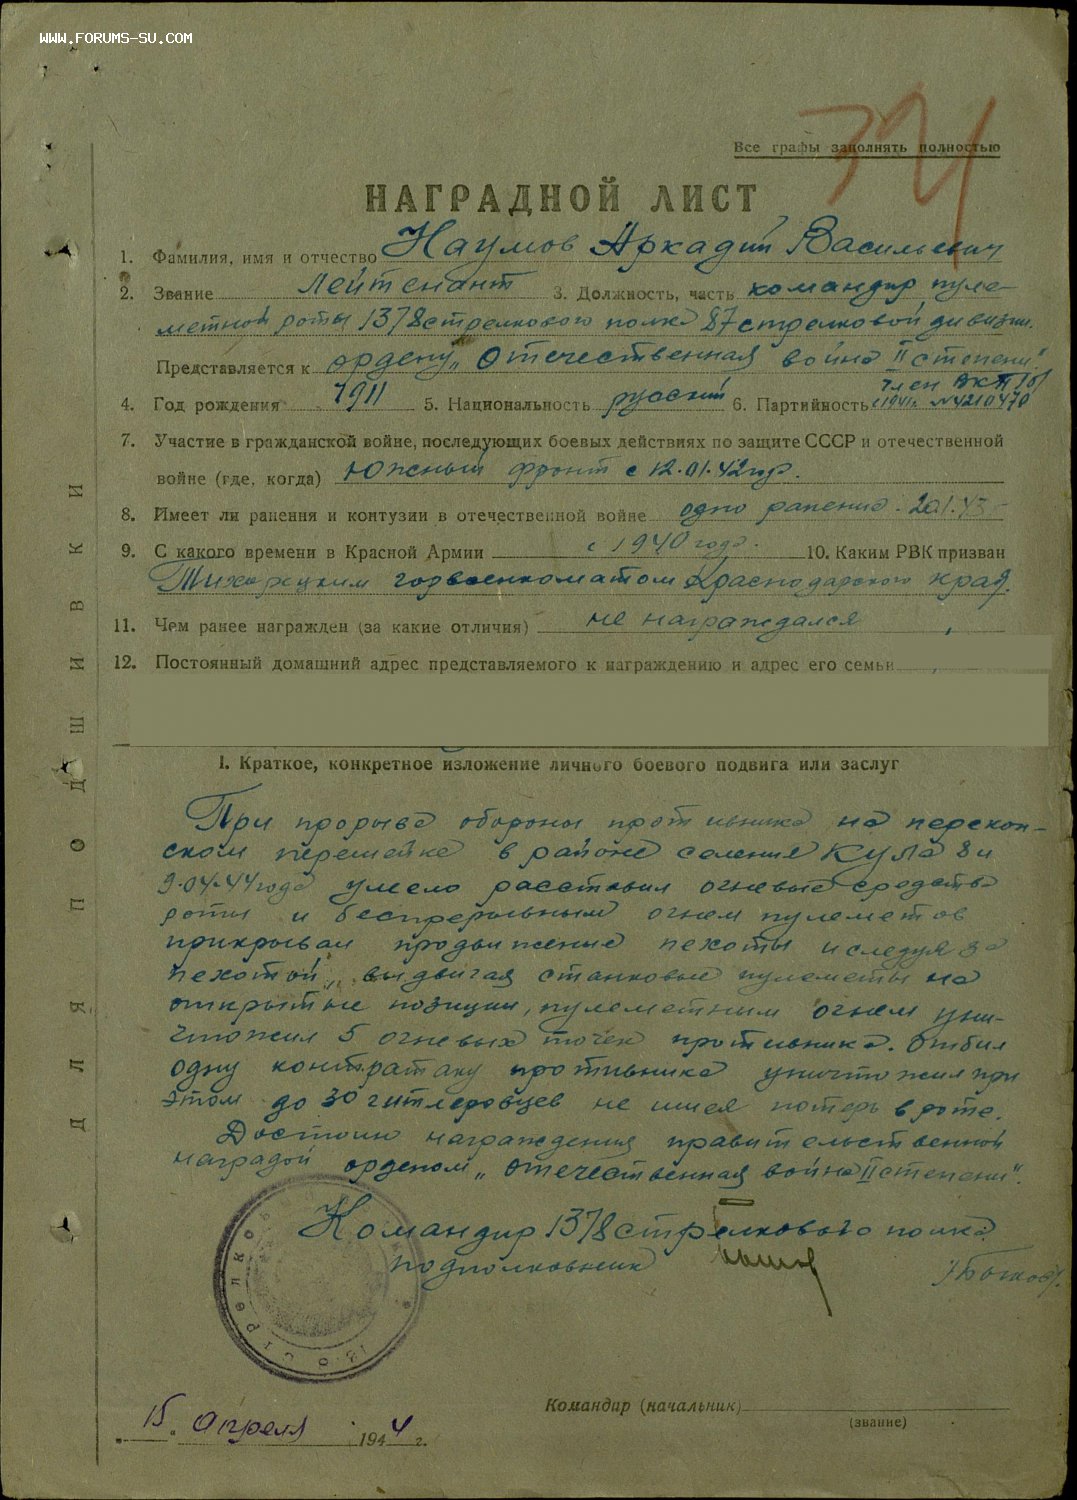 WWW.FORUMS-SU.COM
Все графы заполнять полностью
НАГРАДНОЙ ЛИСТ
1. Фамилия, имя и отчество Наумов Аркадий Васильевич
2. Звание Лейтенант 3. Должность, часть командир пуле-
метной роты 1378 стрелкового полка 87 стрелковой дивизии.
Представляется к ордену „Отечественная война II степени"
член ВКП(б)
4. Год рождения 1911 5. Национальность русский 6. Партийность с 1941г. №4210470
7. Участие в гражданской войне, последующих боевых действиях по защите СССР и отечественной
войне (где, когда) Южный фронт с 12.01.42 года.
8. Имеет ли ранения и контузии в отечественной войне одно ранение
9. С какого времени в Красной Армии с 1940 года. 10. Каким РВК призван
Тихорецким горвоенкоматом Краснодарского края.
11. Чем ранее награжден (за какие отличия) не награждался
12. Постоянный домашний адрес представляемого к награждению и адрес его семьи
I. Краткое, конкретное изложение личного боевого подвига или заслуг
При прорыве обороны противника на перекоп-
ском перешейке в районе селения Кула 8 и
9.04.44 года умело расставил огневые средства
роты и беспрерывным огнем пулеметов
прикрывал продвижение пехоты и следуя за
пехотой, выдвигая станковые пулеметы на
открытые позиции, пулеметним огнем уни-
чтожил 5 огневых точек противника. Отбил
одну контратаку противника уничтожил при
этом до 30 гитлеровцев не имея потерь в роте.
Достоин награждения правительственной
наградой орденом „Отечественная война II степени".
Командир 1378 стрелкового полка
подполковник
15 Апреля 1944 г.
Командир (начальник)
(звание)
ДЛЯ ПОДШИВКИ